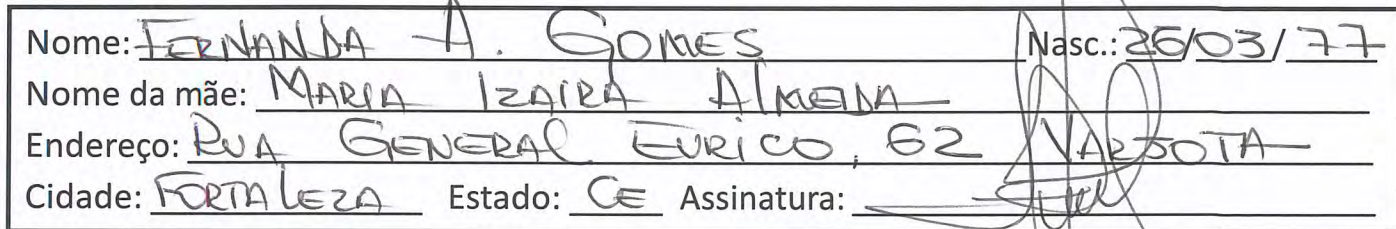 Nome: FERNANDA A. GOMES Nasc.: 26/03/77
Nome da mãe: MARIA IZAIRA ALMEIDA
Endereço: RUA GENERAL EURICO, 62 VARJOTA
Cidade: FORTALEZA Estado: CE Assinatura: